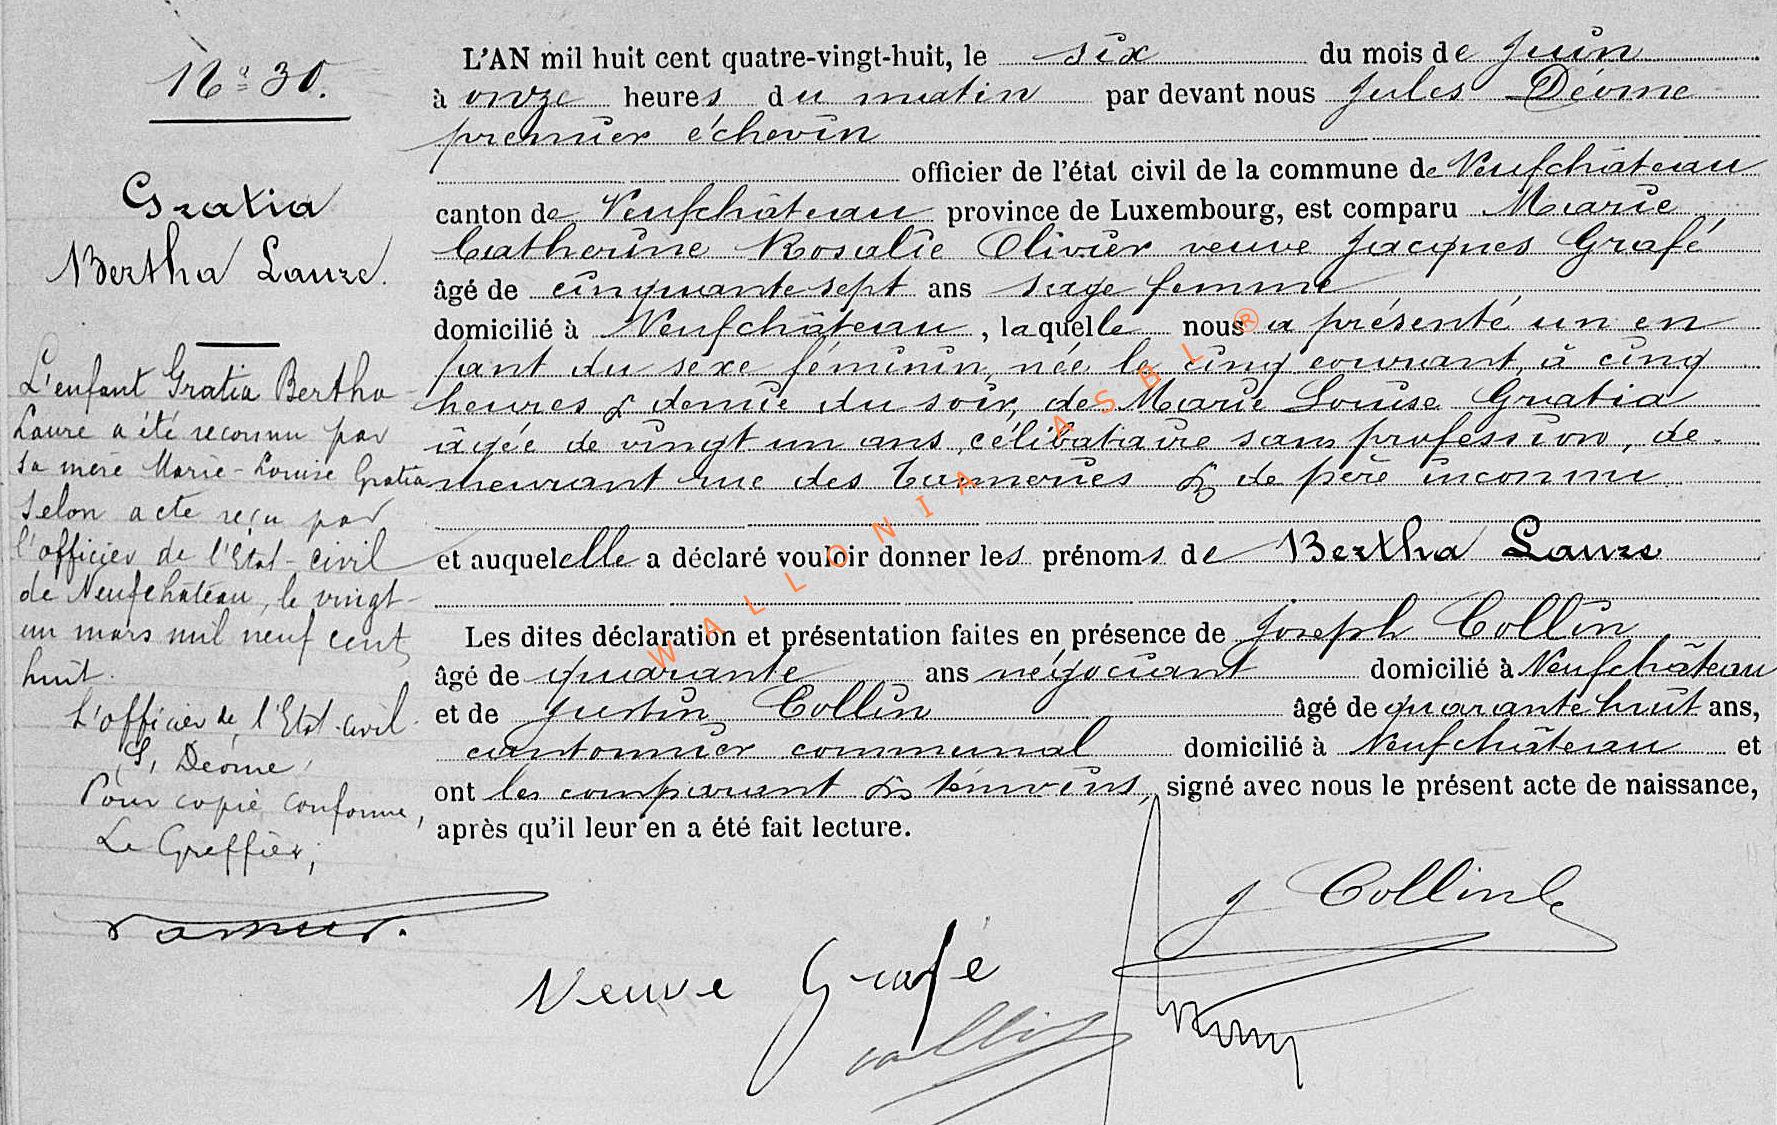 Nº 30.
Gratia
Bertha Laure.
L'enfant Gratia Bertha
Laure a été reconnu par
sa mère Marie-Louise Gratia
selon acte reçu par
l'officier de l'Etat-civil
de Neufchâteau, le vingt-
un mars mil neuf cent
huit.
L'officier de l'Etat-civil
Déome
Pour copie conforme,
Le Greffier,
L'AN mil huit cent quatre-vingt-huit, le six du mois de Juin
à onze heures du matin par devant nous Jules Déome
premier échevin
officier de l'état civil de la commune de Neufchâteau
canton de Neufchâteau province de Luxembourg, est comparu Marie
Catherine Rosalie Olivier veuve Jacques Grafé
âgé de cinquante sept ans sage femme
domicilié à Neufchâteau, laquelle nous a présenté un en
fant du sexe féminin, née le cinq courant, à cinq
heures & demie du soir, de Marie Louise Gratia
agée de vingt un ans, célibataire sans profession, de-
meurant rue des Tanneries & de père inconnu
et auquel elle a déclaré vouloir donner les prénoms de Bertha Laure
Les dites déclaration et présentation faites en présence de Joseph Collin
âgé de quarante ans négociant domicilié à Neufchâteau
et de Justin Collin âgé de quarante huit ans,
cantonnier communal domicilié à Neufchâteau et
ont les comparant & témoins, signé avec nous le présent acte de naissance,
après qu'il leur en a été fait lecture.
J Collin
Veuve Grafé
collin
WALLONIA ASBL ®